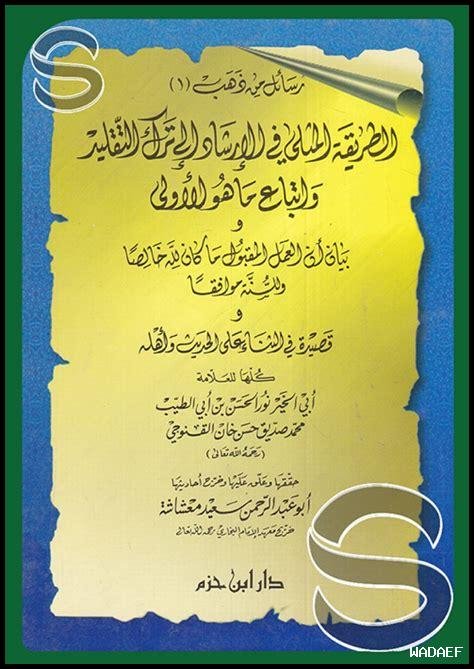 رسائل من ذهب (١)
الطريقة المثلى في الإرشاد إلى ترك التقليد
واتباع ما هو الأولى
و
بيان أن العمل المقبول ما كان لله خالصًا
وللسنة موافقًا
و
قصيدة في الثناء على الحديث وأهله
كلها للعلامة
أبي الخير نور الحسن بن أبي الطيب
محمد صديق حسن خان القنوجي
(رحمه الله تعالى)
حققها وعلق عليها وخرج أحاديثها
أبو عبد الرحمن سعيد معشاشة
خريج معهد الإمام البخاري رحمه الله تعالى
دار ابن حزم
WADAEF